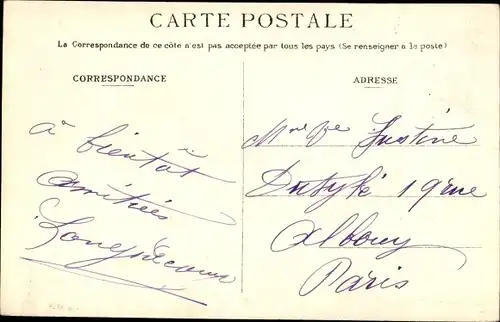 CARTE POSTALE
La Correspondance de ce côté n'est pas acceptée par tous les pays (Se renseigner à la poste)
CORRESPONDANCE
ADRESSE
à bientôt
amitiés
Mme Justine
19
Albouy
Paris